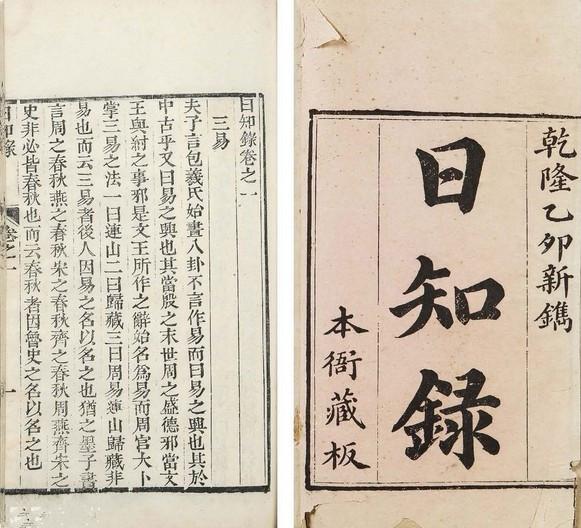 乾隆乙卯新鐫
日知錄
本衙藏板
日知錄卷之一
三易
夫子言包羲氏始畫八卦不言作易而曰易之興也其於
中古乎又曰易之興也其當殷之末世周之盛德邪當文
王與紂之事邪是文王所作之辭始名爲易而周官大卜
掌三易之法一曰連山二曰歸藏三曰周易連山歸藏非
易也而云三易者後人因易之名以名之也猶之墨子書
言周之春秋燕之春秋宋之春秋齊之春秋周燕齊宋之
史非必皆春秋也而云春秋者因魯史之名以名之也
日知錄
卷之一
一